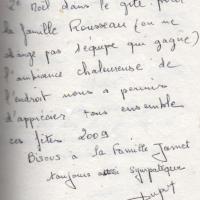 2e Noël dans le gîte pour
la famille Rousseau (on ne
change pas d'equipe qui gagne)
l'ambiance chaleureuse de
l'endroit nous a permis
d'apprécier tous ensemble
ces fêtes 2009
Bisous a la Famille
toujours sympatique